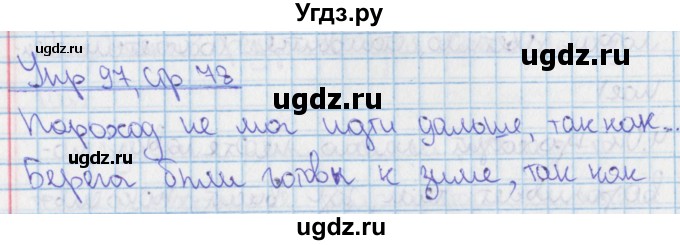 Угдз.ру
ugdz.ru
ugdz.ru
Упр 97, стр 78
ugdz.ru
Пароход не мог идти дальше, так как...
Берега были готовы к зиме, так как
ugdz.ru
ugdz.ru